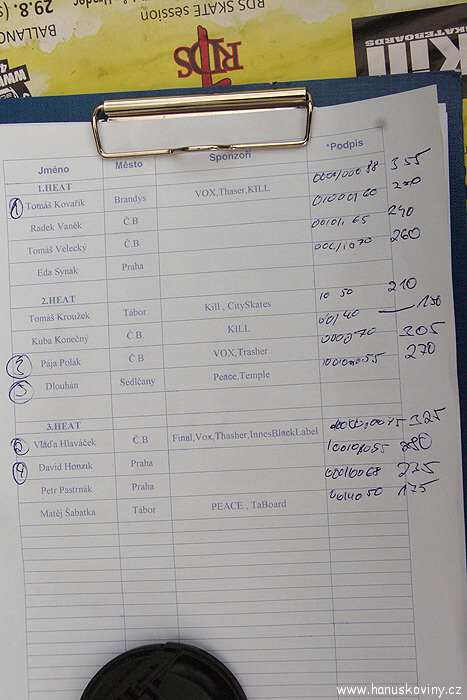 29.8. (s
RDS SKATE session
BALLANC
RDS
Kill
SKATEBOARDS
Jméno Město Sponzoři *Podpis
1.HEAT
1 Tomáš Kovařík Brandýs VOX,Thaser,KILL 88 355
Radek Vaněk Č.B 60
Tomáš Velecký Č.B 65 240
Eda Synak Praha 70 260
2.HEAT
Tomáš Kroužek Tábor Kill , CitySkates 10 50 210
Kuba Konečný Č.B KILL 40
Pája Polák Č.B VOX,Trasher 70 305
Dlouhán Sedlčany Peace,Temple 55 270
3.HEAT
Vláďa Hlaváček Č.B Final,Vox,Thasher,InnesBlackLabel 75 325
4 David Honzík Praha 55 280
Petr Pastrnák Praha 68 275
Matěj Šabatka Tábor PEACE , TaBoard 50 175
www.hanuskoviny.cz